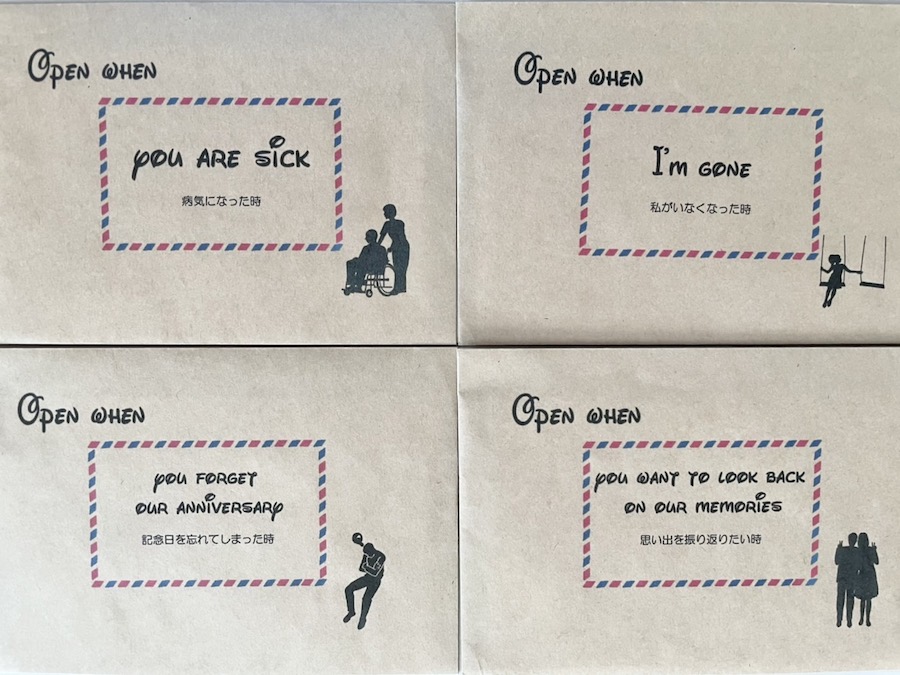 Open when
you are sick
病気になった時
Open when
I'm gone
私がいなくなった時
Open when
you forget
our anniversary
記念日を忘れてしまった時
Open when
you want to look back
on our memories
思い出を振り返りたい時